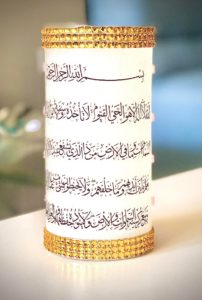 بسم الله الرحمن الرحيم
الله لا إله إلا هو الحي القيوم لا تأخذه سنة ولا
السموات وما في الأرض من ذا الذي يشفع
بين أيديهم وما خلفهم ولا يحيطون بشيء
السموات والأرض ولا يؤده حفظهما